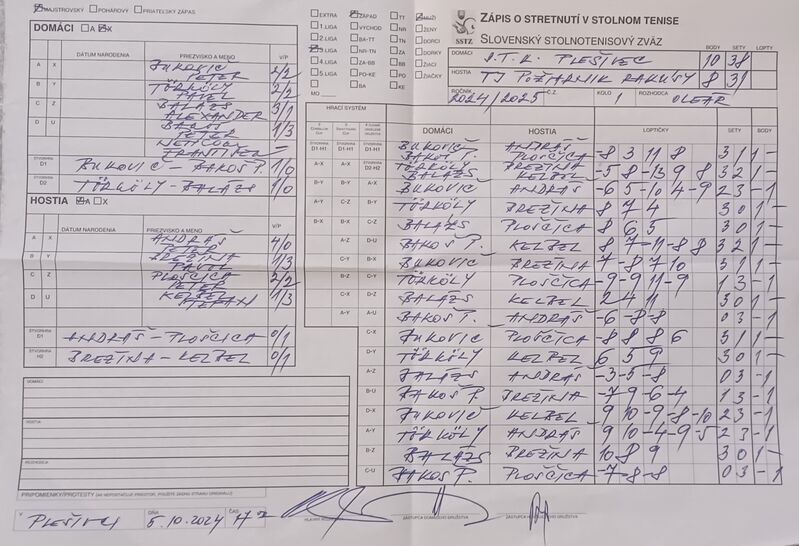 MAJSTROVSKÝ POHÁROVÝ PRIATEĽSKÝ ZÁPAS
DOMÁCI A X
DÁTUM NARODENIA PRIEZVISKO A MENO V/P
A X BUKOVIČ PETER 2/2
B Y TÖRKÖLY PAVEL 2/2
C Z BALÁZS ALEXANDER 3/1
D U BAKOŠ PETER 1/3
D1 BUKOVIČ - BAKOŠ P. 1/0
D2 TÖRKÖLY - BALÁZS 1/0
HOSTIA A X
DÁTUM NARODENIA PRIEZVISKO A MENO V/P
A X ANDRÁŠ PETER 4/0
B Y BREZINA PAVEL 1/3
C Z PLOŠČICA PETER 2/2
D U KELBEL ŠTEFAN 1/3
ŠTVORHRA D1 ANDRÁŠ - PLOŠČICA 0/1
ŠTVORHRA H2 BREZINA - KELBEL 0/1
DOMÁCI
HOSTIA
ROZHODCA
PRIPOMIENKY/PROTESTY
V PLEŠIVCI DŇA 5.10.2024 ČAS
EXTRA ZÁPAD TT MUŽI
1 LIGA VÝCHOD NR ŽENY
2 LIGA BA-TT TN DORKY
3 LIGA NR-TN ZA DORKY
4 LIGA ZA-BB BB ŽIACI
5 LIGA PO-KE PO ŽIAČKY
MO BA KE
SSTZ
ZÁPIS O STRETNUTÍ V STOLNOM TENISE
SLOVENSKÝ STOLNOTENISOVÝ ZVÄZ
BODY SETY LOPTY
DOMÁCI S.T.K. PLEŠIVEC 10 38
HOSTIA TJ POŽIARNIK RAKÚSY 8 31
ROČNÍK 2024/2025 Č.Z. KOLO 1 ROZHODCA OLEÁR
HRACÍ SYSTÉM
DOMÁCI HOSTIA LOPTIČKY SETY BODY
D1-H1 D1-H1 ŠTVORHRA D1-H1 BUKOVIČ BAKOŠ P. ANDRÁŠ PLOŠČICA -8 3 11 8 3 1 1 -
A-X A-X ŠTVORHRA D2-H2 TÖRKÖLY BALÁZS BREZINA KELBEL -5 8 -13 9 8 3 2 1 -
B-Y B-Y A-X BUKOVIČ ANDRÁŠ -6 5 -10 4 -9 2 3 - 1
A-Y C-Z B-Y TÖRKÖLY BREZINA 8 7 4 3 0 1 -
B-X B-X C-Z BALÁZS PLOŠČICA 8 6 5 3 0 1 -
A-Z D-U BAKOŠ P. KELBEL 8 7 -11 -8 8 3 2 1 -
C-Y B-X BUKOVIČ BREZINA 7 -8 7 10 3 1 1 -
B-Z C-Y TÖRKÖLY PLOŠČICA -9 -9 11 -9 1 3 - 1
C-X D-Z BALÁZS KELBEL 2 4 11 3 0 1 -
A-U BAKOŠ P. ANDRÁŠ -6 -8 -8 0 3 - 1
C-X BUKOVIČ PLOŠČICA -8 8 8 6 3 1 1 -
D-Y TÖRKÖLY KELBEL 6 5 9 3 0 1 -
A-Z BALÁZS ANDRÁŠ -3 -5 -8 0 3 - 1
B-U BAKOŠ P. BREZINA -7 9 -6 -4 1 3 - 1
D-X BUKOVIČ KELBEL 9 10 -9 -8 -10 2 3 - 1
A-Y TÖRKÖLY ANDRÁŠ 9 10 -4 -9 -5 2 3 - 1
B-Z BALÁZS BREZINA 10 8 9 3 0 1 -
C-U BAKOŠ P. PLOŠČICA -7 -8 -8 0 3 - 1
HLAVNÝ ROZHODCA ZÁSTUPCA DOMÁCEHO DRUŽSTVA ZÁSTUPCA HOSŤUJÚCEHO DRUŽSTVA